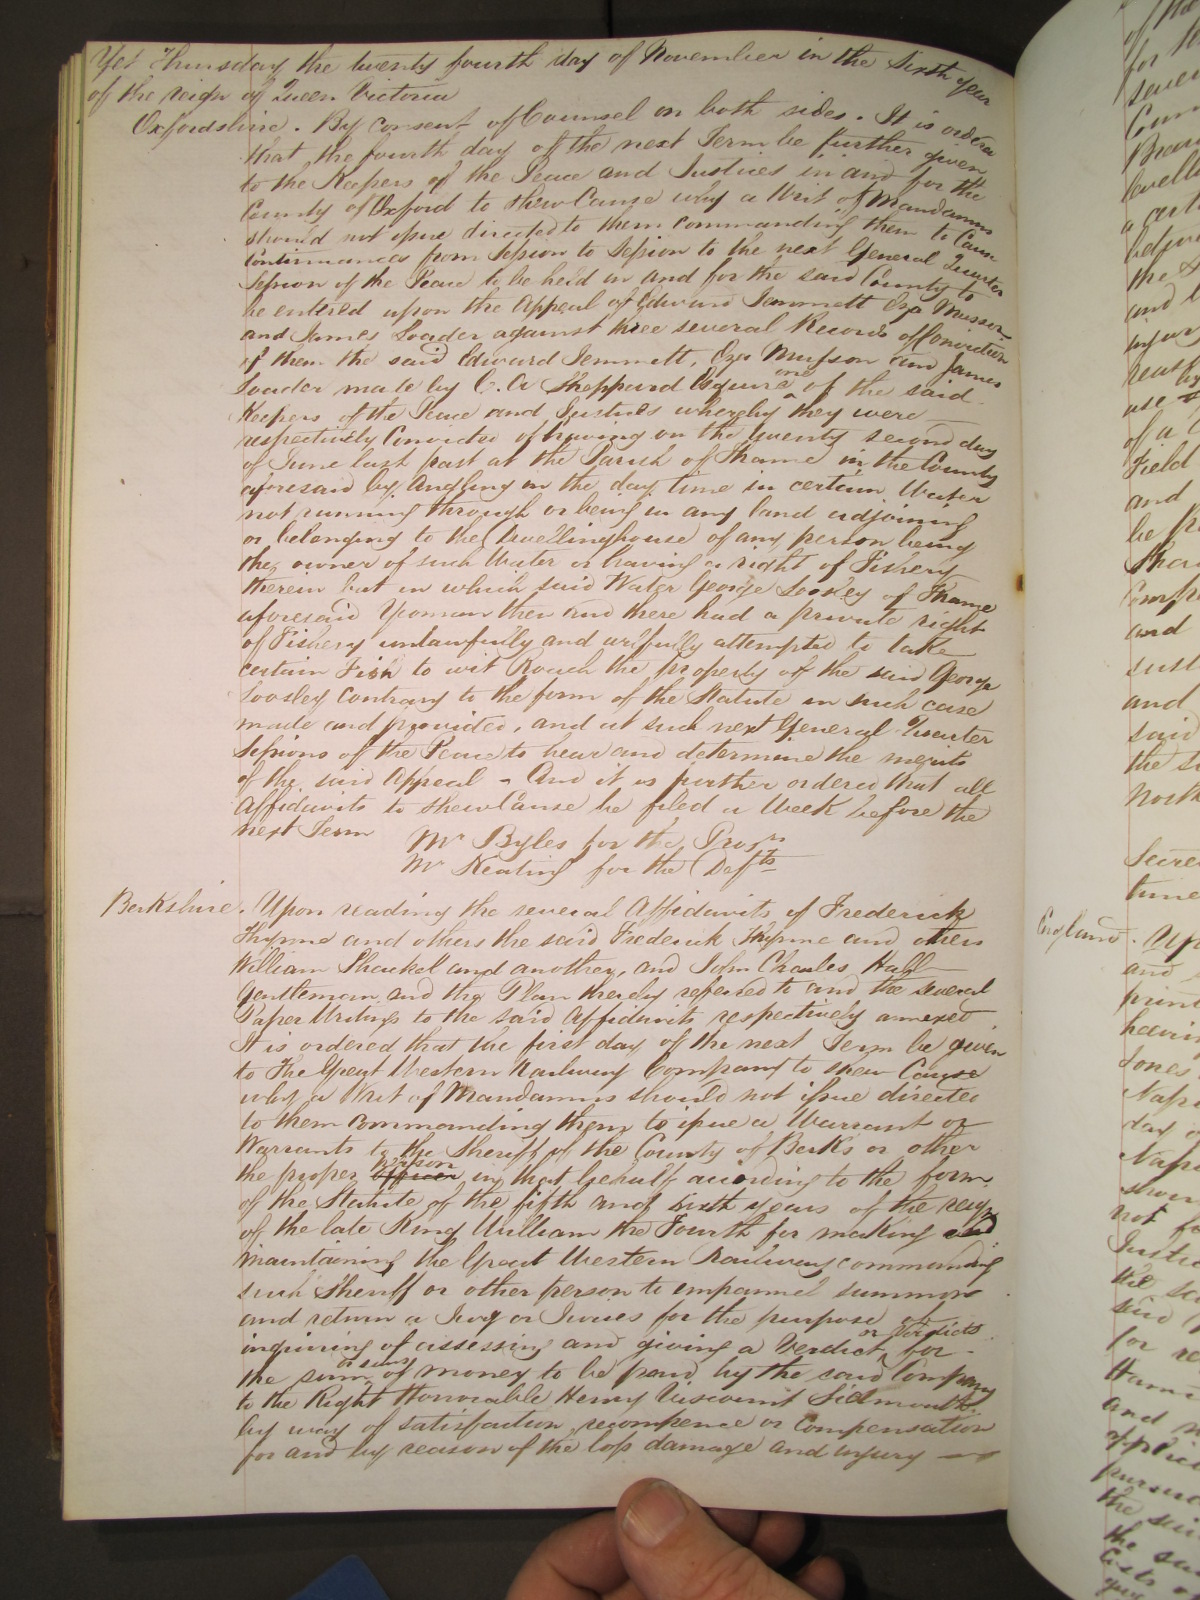 Yet Thursday the twenty fourth day of November in the Sixth year
of the reign of Queen Victoria
Oxfordshire. By consent of Counsel on both sides. It is ordered
that the fourth day of the next Term be further given
to the Keepers of the Peace and Justices in and for the
County of Oxford to shew Cause why a Writ of Mandamus
should not issue directed to them commanding them to Cause
Continuances from Session to Session to the next General Quarter
Session of the Peace to be held in and for the said County to
be entered upon the Appeal of Edward Jemmett Eza Musson
and James Loader against three several Records of Conviction
of them the said Edward Jemmett, Eza Musson and James
Loader made by C. A Sheppard Esquire one of the said
Keepers of the Peace and Justices whereby they were
respectively Convicted of having on the twenty second day
of June last past at the Parish of Thame in the County
aforesaid by Angling in the day time in certain Water
not running through or being in any land adjoining
or belonging to the Dwellinghouse of any person being
the owner of such Water or having a right of Fishery
therein but in which said Water George Loosley of Thame
aforesaid Yeoman then and there had a private right
of Fishery unlawfully and wilfully attempted to take
certain Fish to wit Roach the property of the said George
Loosley contrary to the form of the Statute in such case
made and provided, and at such next General Quarter
Sessions of the Peace to hear and determine the merits
of the said Appeal - And it is further ordered that all
Affidavits to shew Cause be filed a Week before the
next Term
Mr Byles for the Prosrs
Mr Keating for the Defts
Berkshire. Upon reading the several Affidavits of Frederick
Thynne and others the said Frederick Thynne and others
William Shackel and another, and John Charles Hall
Gentleman and the Plan thereby referred to and the several
Paper Writings to the said Affidavits respectively annexed
It is ordered that the first day of the next Term be given
to The Great Western Railway Company to shew Cause
why a Writ of Mandamus should not issue directed
to them commanding them to issue a Warrant or
Warrants to the Sheriff of the County of Berks or other
the proper officer person in that behalf according to the form
of the Statute of the fifth and sixth years of the reign
of the late King William the Fourth for making and
maintaining the Great Western Railway commanding
such Sheriff or other person to empannel summon
and return a Jury or Juries for the purpose of
inquiring of assessing and giving a Verdict or Verdicts for
the sum or sums of money to be paid by the said Company
to the Right Honorable Henry Viscount Sidmouth
by way of satisfaction recompence or Compensation
for and by reason of the loss damage and injury
England. Up